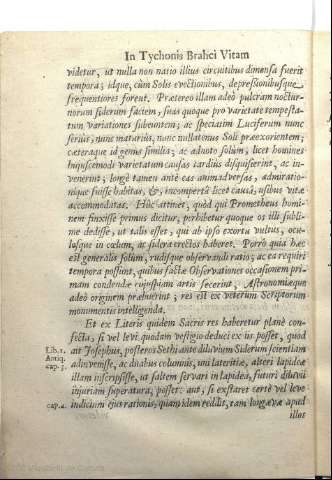 In Tychonis Brahei Vitam
videtur, ut nulla non natio illius circuitibus dimensa fuerit
tempora; idque, cùm Solis evectionibus, depressionibusque
frequentiores forent. Prætereo illam adeò pulcram noctur-
norum siderum faciem, suas quoque pro varietate tempesta-
tum variationes subeuntem; ac speciatim Luciferum nunc
seriùs, nunc maturiùs, nunc nullatenus Soli præexorientem;
cæteraque id genus similia; ac adnoto solùm, licet homines
hujuscemodi varietatum causas tardiùs disquisierint, ac in-
venerint; longè tamen antè eas animadversas, admiratio-
nique fuisse habitas, &, incompertâ licet causâ, usibus vitæ
accommodatas. Hûc attinet, quòd qui Prometheus homi-
nem finxisse primus dicitur, perhibetur quoque os illi subli-
me dedisse, ut talis esset, qui ab ipso exortu vultus, ocu-
losque in cœlum, ac sidera erectos haberet. Porrò quia hæc
est generalis solùm, rudisque observandi ratio; ac ea requiri
tempora possint, quibus factæ Observationes occasionem pri-
mam condendæ cujuspiam artis fecerint, Astronomiæque
adeò originem præbuerint; res est ex veterum Scriptorum
monumentis intelligenda.
Et ex Literis quidem Sacris res haberetur planè con-
fecta, si vel levi quodam vestigio deduci ex iis posset, quod
Lib. 1. ait Josephus, posteros Sethi ante diluvium Siderum scientiam
Antiq. adinvenisse, ac duabus columnis, uni lateritiæ, alteri lapideæ
cap. 3. illam inscripsisse, ut saltem servari in lapidea, futuri diluvii
injuriam superatura, posset: aut, si exstaret certè vel leve
cap. 4. indicium ejus rationis, quam idem reddit, tam longævæ apud
illos